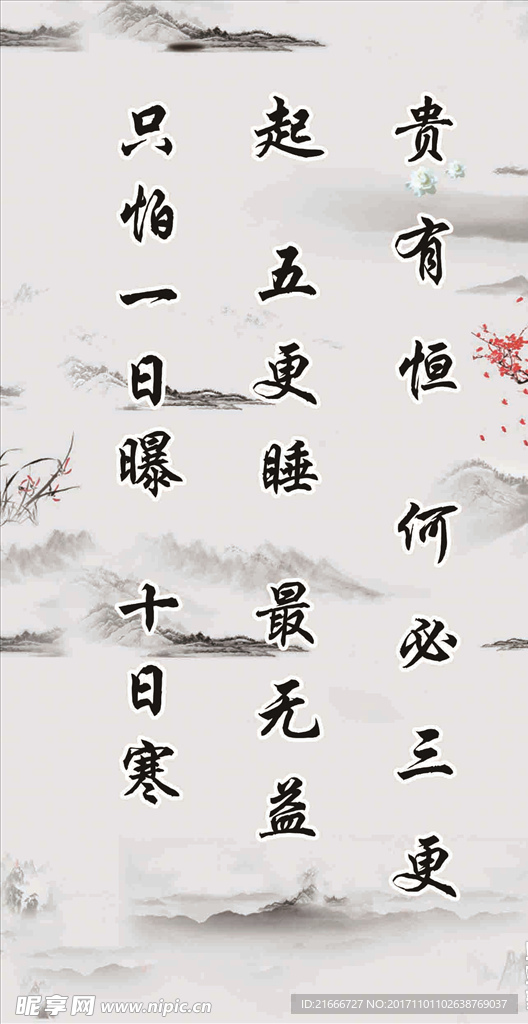 贵有恒 何必三更
起 五更睡 最无益
只怕一日曝 十日寒
昵享网 www.nipic.cn
ID:21666727 NO:20171101102638769037